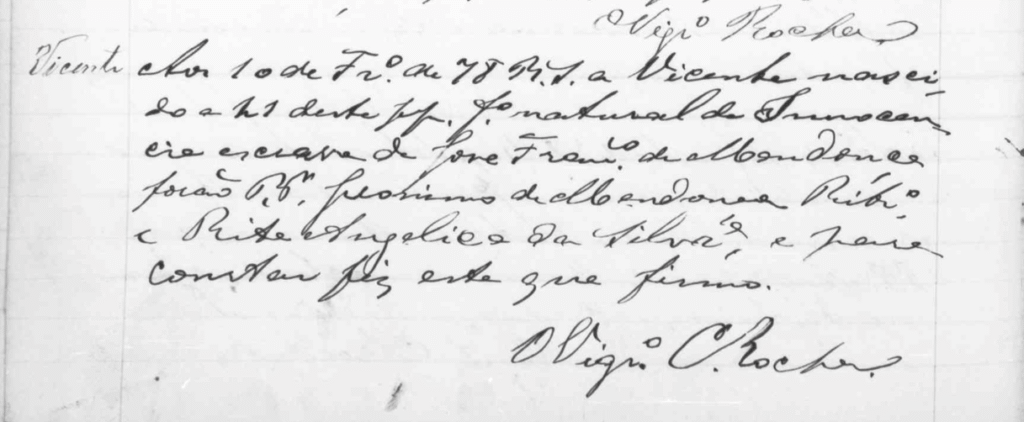 Vigr.º Rocha
Vicente Aos 10 de Fr.º de 78 B. S. a Vicente nasci-
do a 21 deste pp. f.º natural de Innocen-
cia escrava de José Franc.º de Mendonça
forão PP. Jeronimo de Mendonça Ribr.º
e Rita Angelica da Silvr.ª, e para
constar fiz este que firmo.
O Vigr.º C. Rocha.